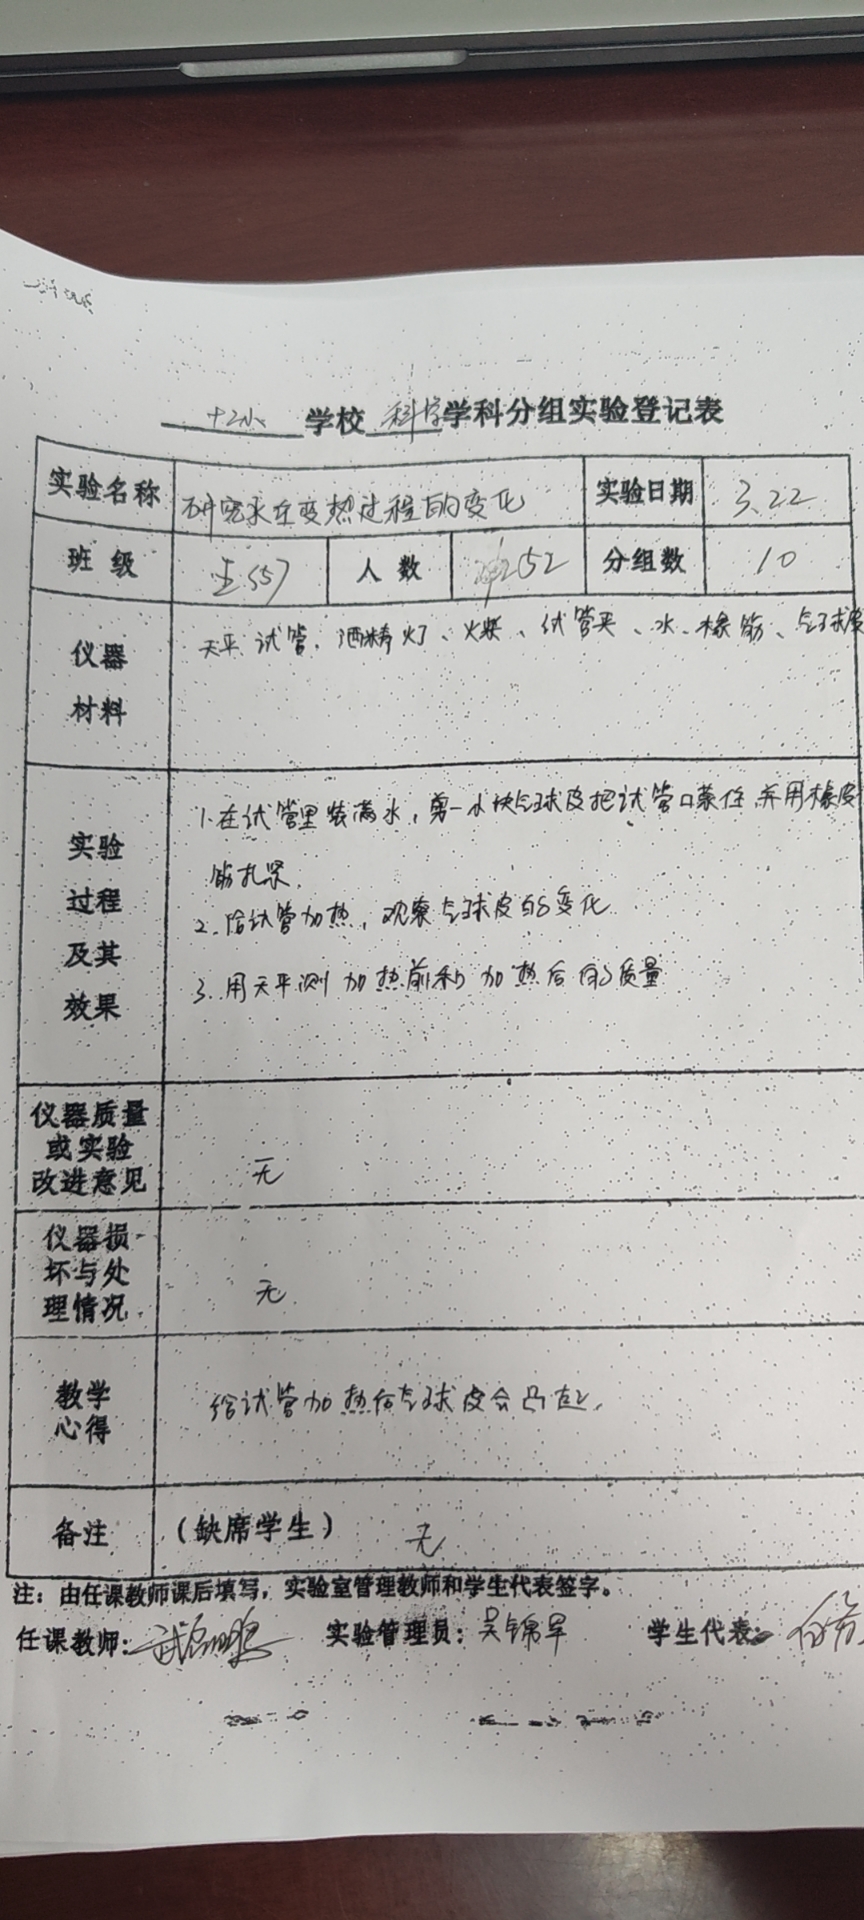 十二小 学校 科学 学科分组实验登记表
实验名称 研究水在变热过程的变化 实验日期 3.22
班 级 五(5) 人 数 52 分组数 10
仪器 材料 天平、试管、酒精灯、火柴、试管夹、水、橡筋、气球皮
实验 过程 及其 效果
1.在试管里装满水,剪一小块气球皮把试管口蒙住,并用橡皮
筋扎紧.
2.给试管加热,观察气球皮的变化
3.用天平测加热前和加热后的质量
仪器质量 或实验 改进意见 无
仪器损 坏与处 理情况 无.
教学 心得 给试管加热后气球皮会凸起.
备注 (缺席学生) 无
注:由任课教师课后填写,实验室管理教师和学生代表签字。
任课教师: 实验管理员:吴锦军 学生代表: